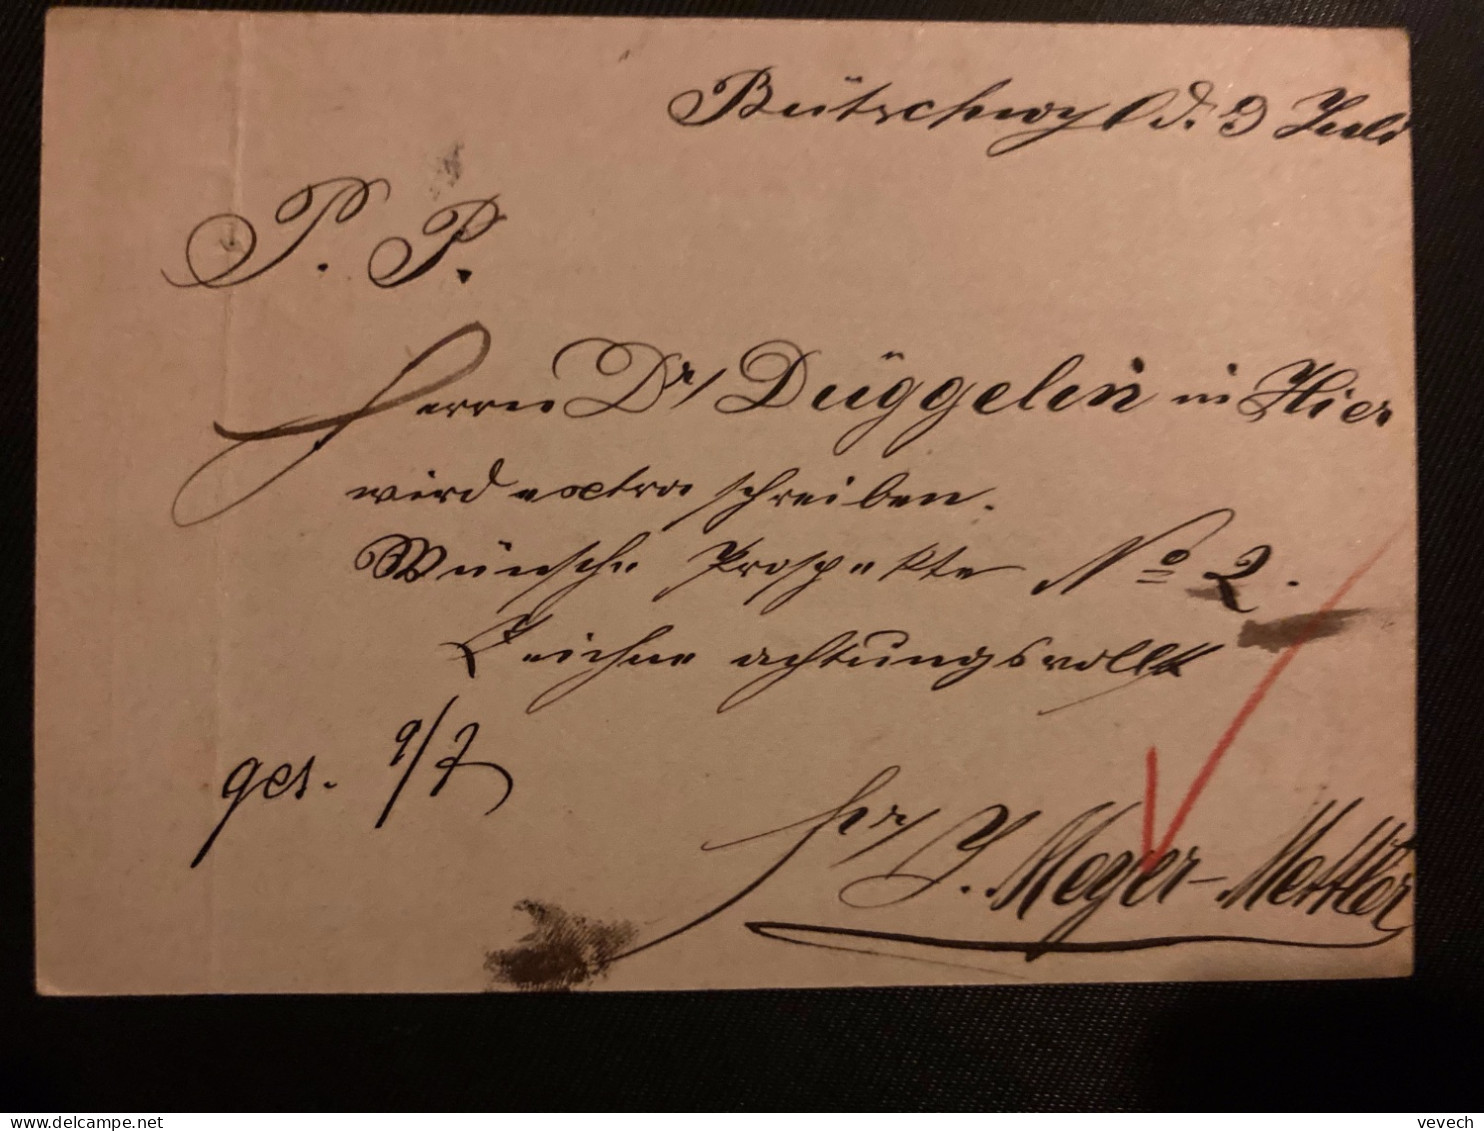 Bütschwyl d. 9 Juli
P. P.
Herrn Dr Düggelin in Hier
wird extra schreiben.
Wünsche Prospekte No 2.
Zeichne achtungsvollst
ges. 9/7
J. Meyer-Mettler
vevech
www.delcampe.net